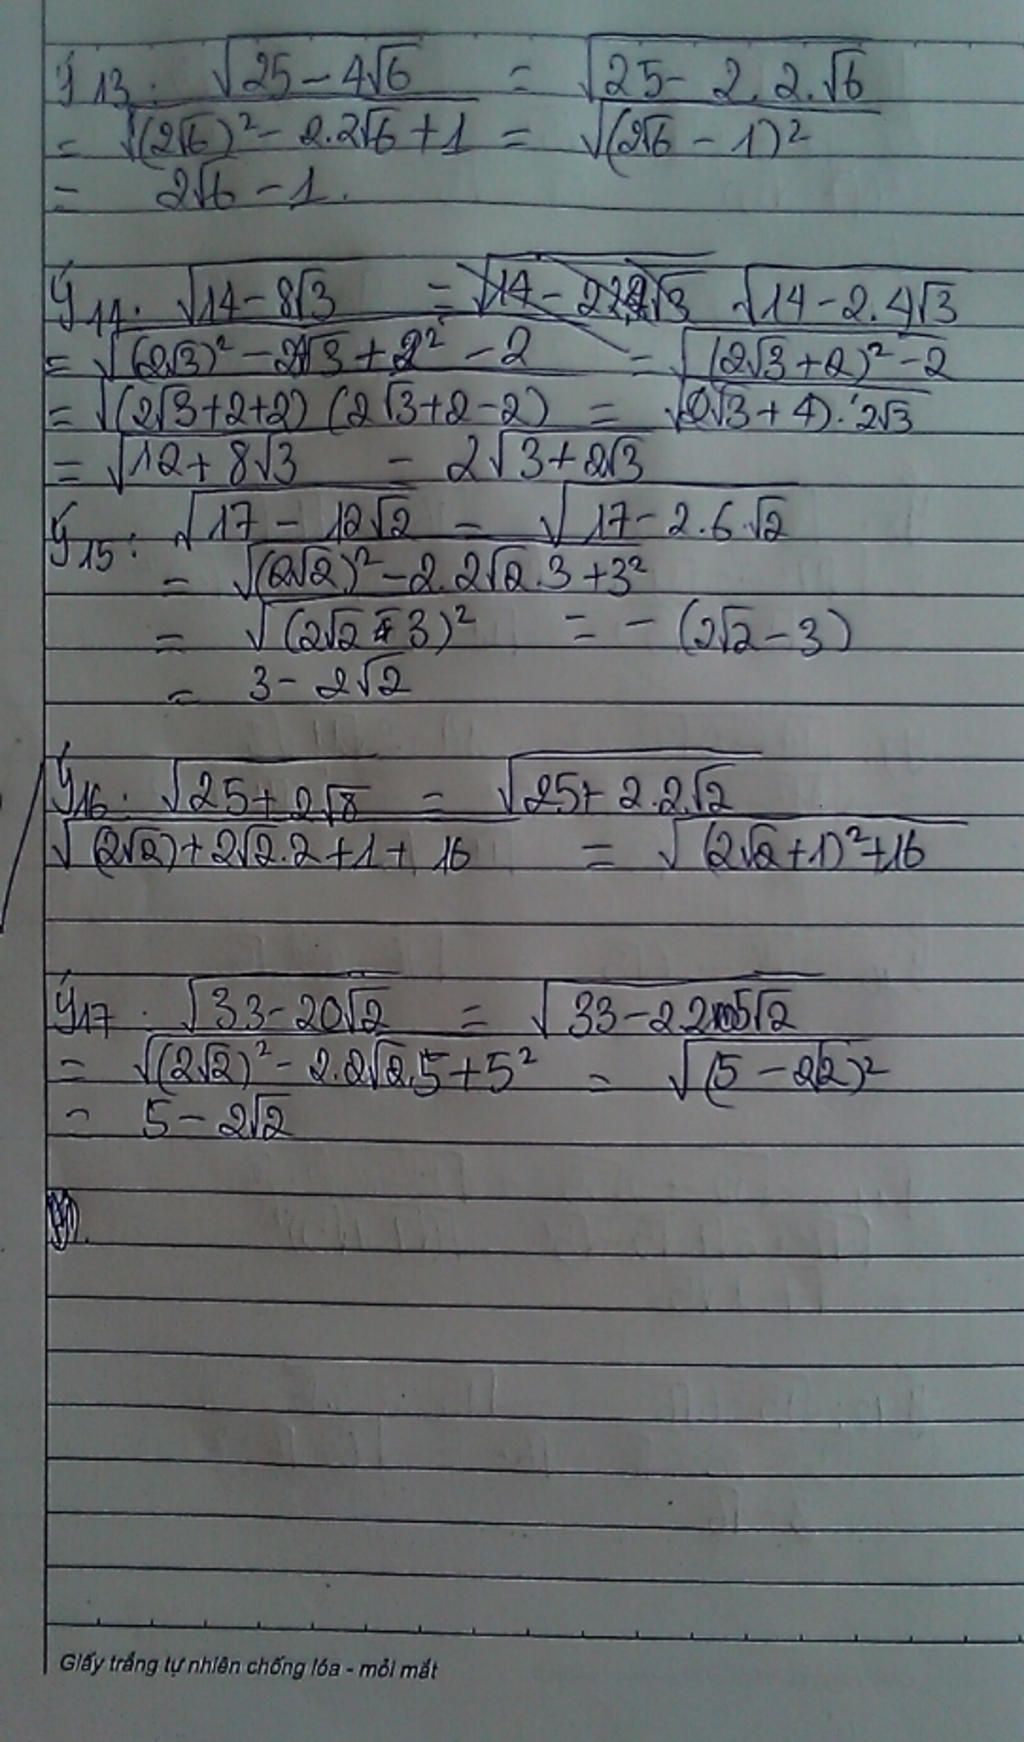 Ý13: √25 - 4√6 = √25 - 2.2.√6
= √(2√6)² - 2.2√6 + 1 = √(2√6 - 1)²
= 2√6 - 1.
Ý14: √14 - 8√3 = √14 - 2.4√3
= √(2√3)² - 2√3 + 2² - 2 = √(2√3 + 2)² - 2
= √(2√3 + 2 + 2) (2√3 + 2 - 2) = √(2√3 + 4). 2√3
= √12 + 8√3 - 2√3 + 2√3
Ý15: √17 - 12√2 = √17 - 2.6.√2
= √(2√2)² - 2.2√2.3 + 3²
= √(2√2 - 3)² = - (2√2 - 3)
= 3 - 2√2
Ý16: √25 + 2√8 = √25 + 2.2√2
√(2√2) + 2√2.2 + 1 + 16 = √(2√2 + 1)² + 16
Ý17: √33 - 20√2 = √33 - 2.2.5√2
= √(2√2)² - 2.2√2.5 + 5² = √(5 - 2√2)²
= 5 - 2√2
Giấy trắng tự nhiên chống lóa - mỏi mắt